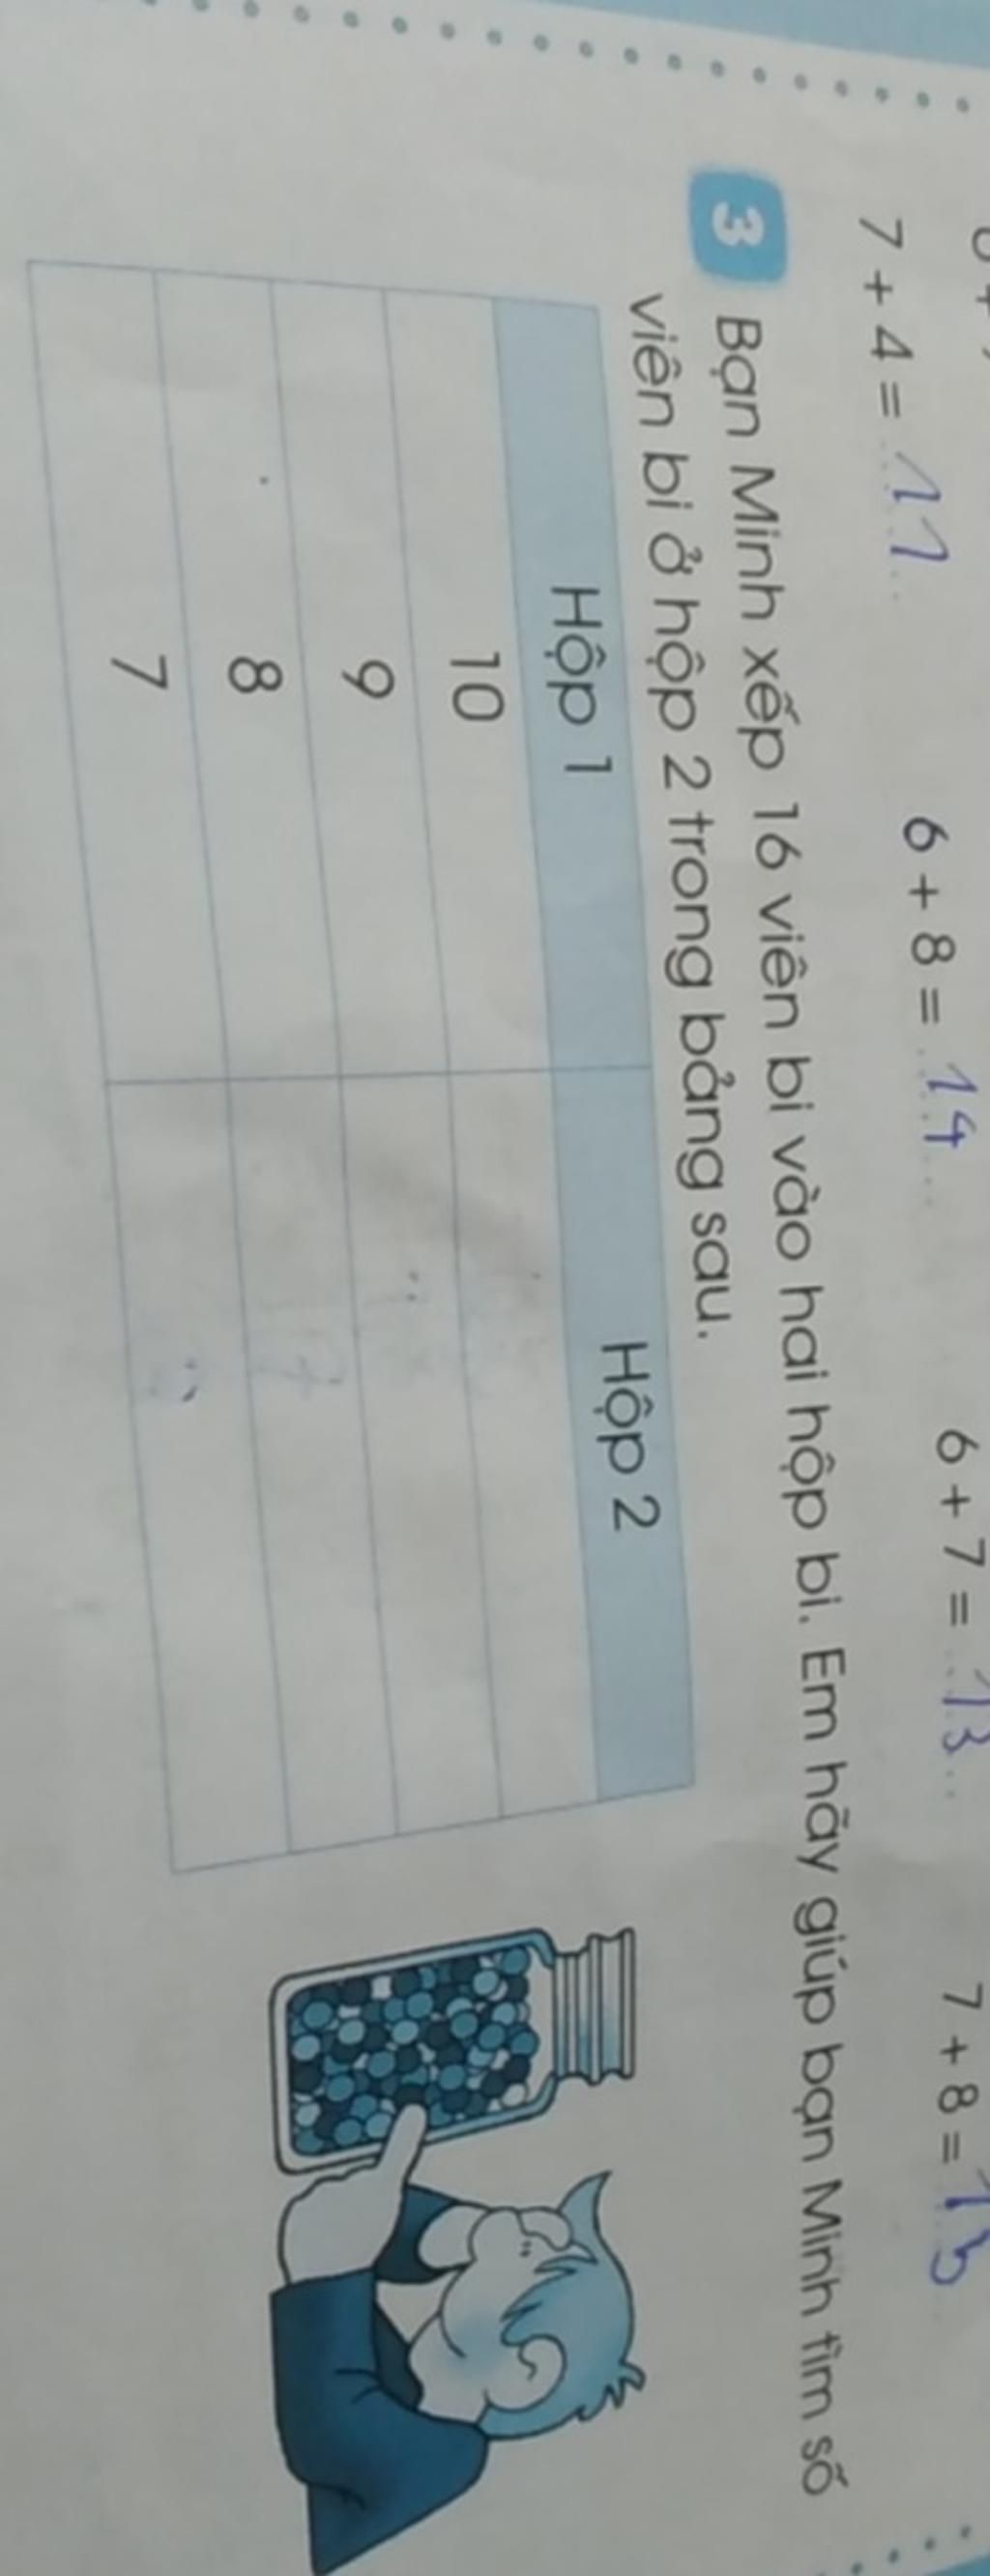 7 + 4 = 11 6 + 8 = 14 6 + 7 = 13 7 + 8 = 15
3 Bạn Minh xếp 16 viên bi vào hai hộp bi. Em hãy giúp bạn Minh tìm số
viên bi ở hộp 2 trong bảng sau.
Hộp 1 Hộp 2
10
9
8
7